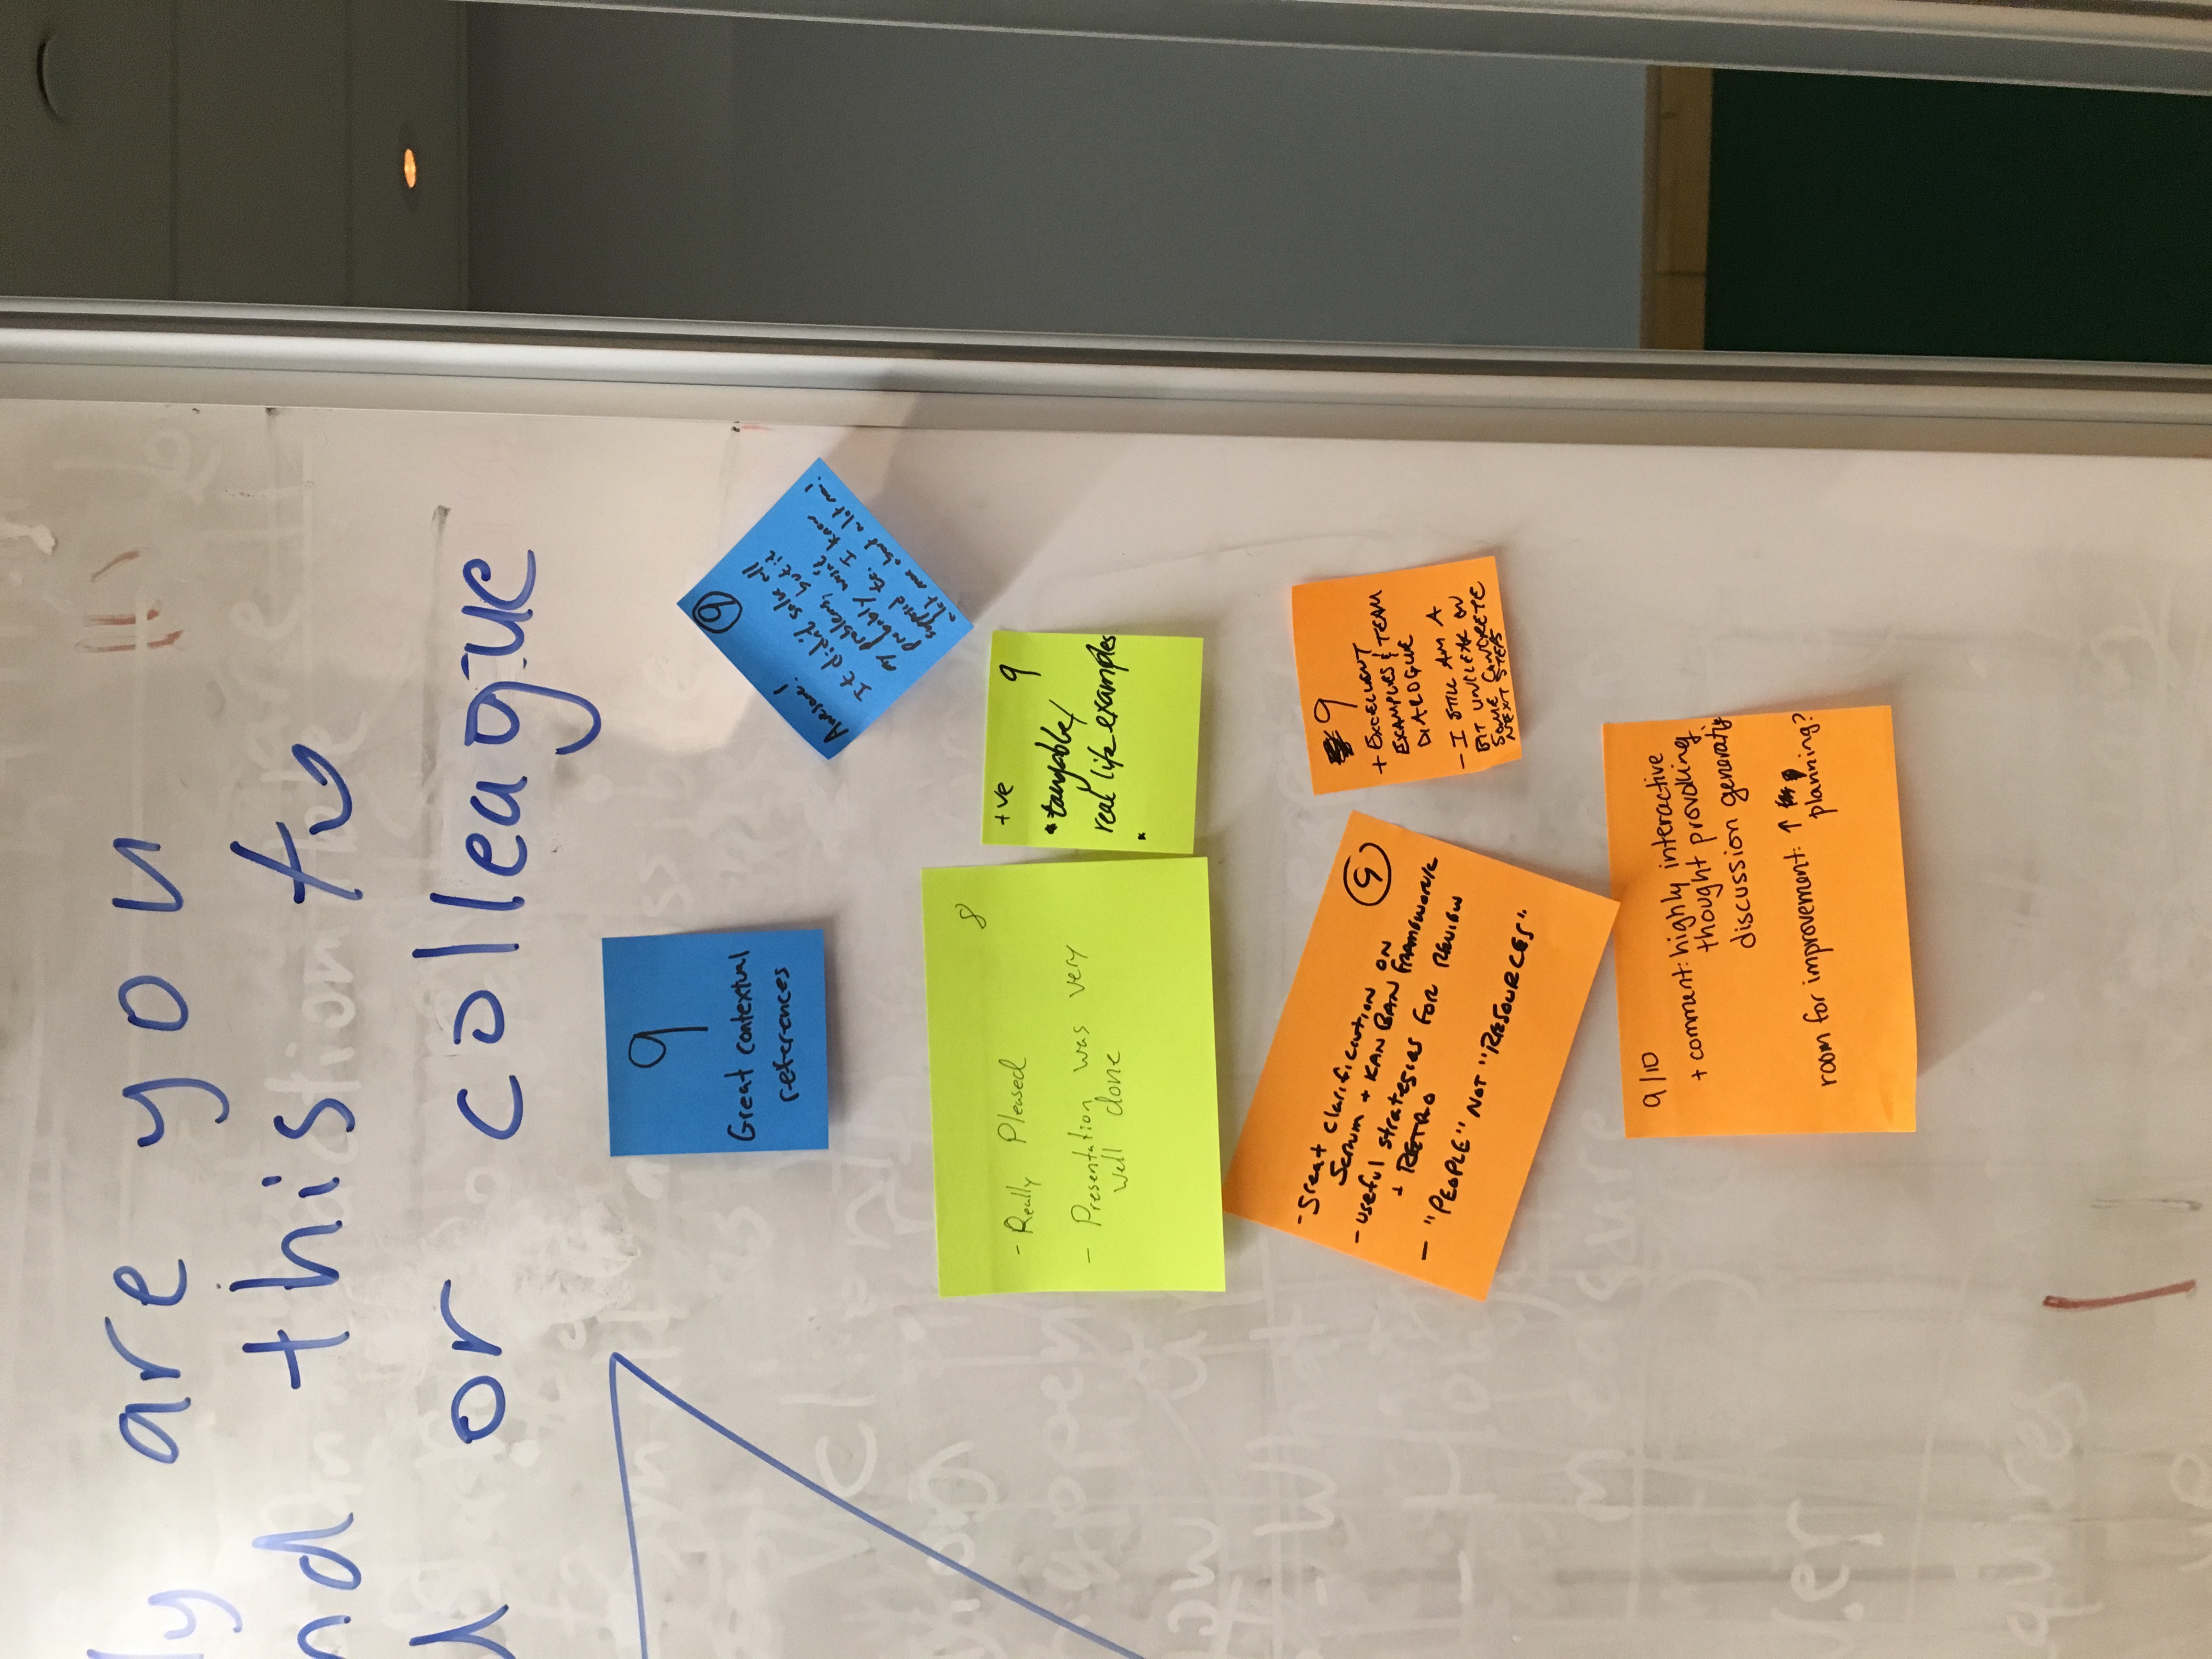 ly are you
nd this to
d or colleague
9
Great contextual
references
9
Awesome!
It didn't solve all
my problems, but it
probably wasn't
supposed to. I know
a lot more about a lot now!
8
- Really Pleased
- Presentation was very
well done
+ve 9
• tangable/
real life examples
9
- great clarification on
Scrum + KANBAN FRAMEWORK
- useful strategies for Review
+ RETRO
- "PEOPLE" NOT "RESOURCES"
9
+ EXCELLENT
EXAMPLES & TEAM
DIALOGUE
- I STILL AM A
BIT UNCLEAR ON
SOME CONCRETE
NEXT STEPS
9/10
+ comment: highly interactive
thought provoking
discussion generating
room for improvement: ↑
planning?